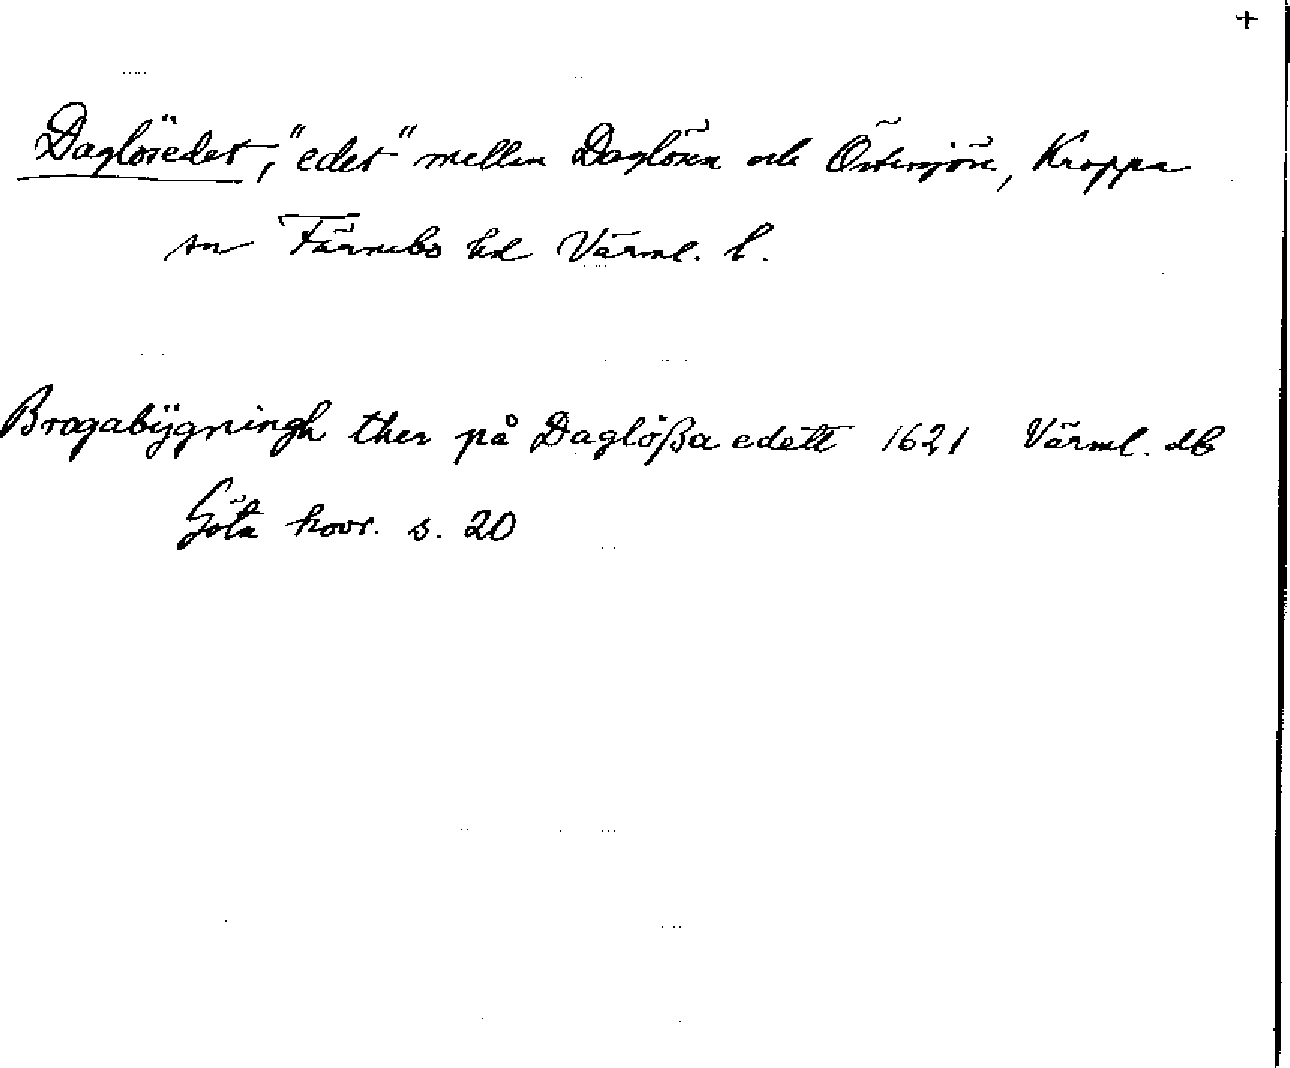 +
Daglösedet, "edet" mellan Daglösen och Östersjön, Kroppa
sn Färnebo hd Värml. l.
Brogabÿgningh ther på Daglößa edett 1621 Värml. db
Göta hovr. s. 20